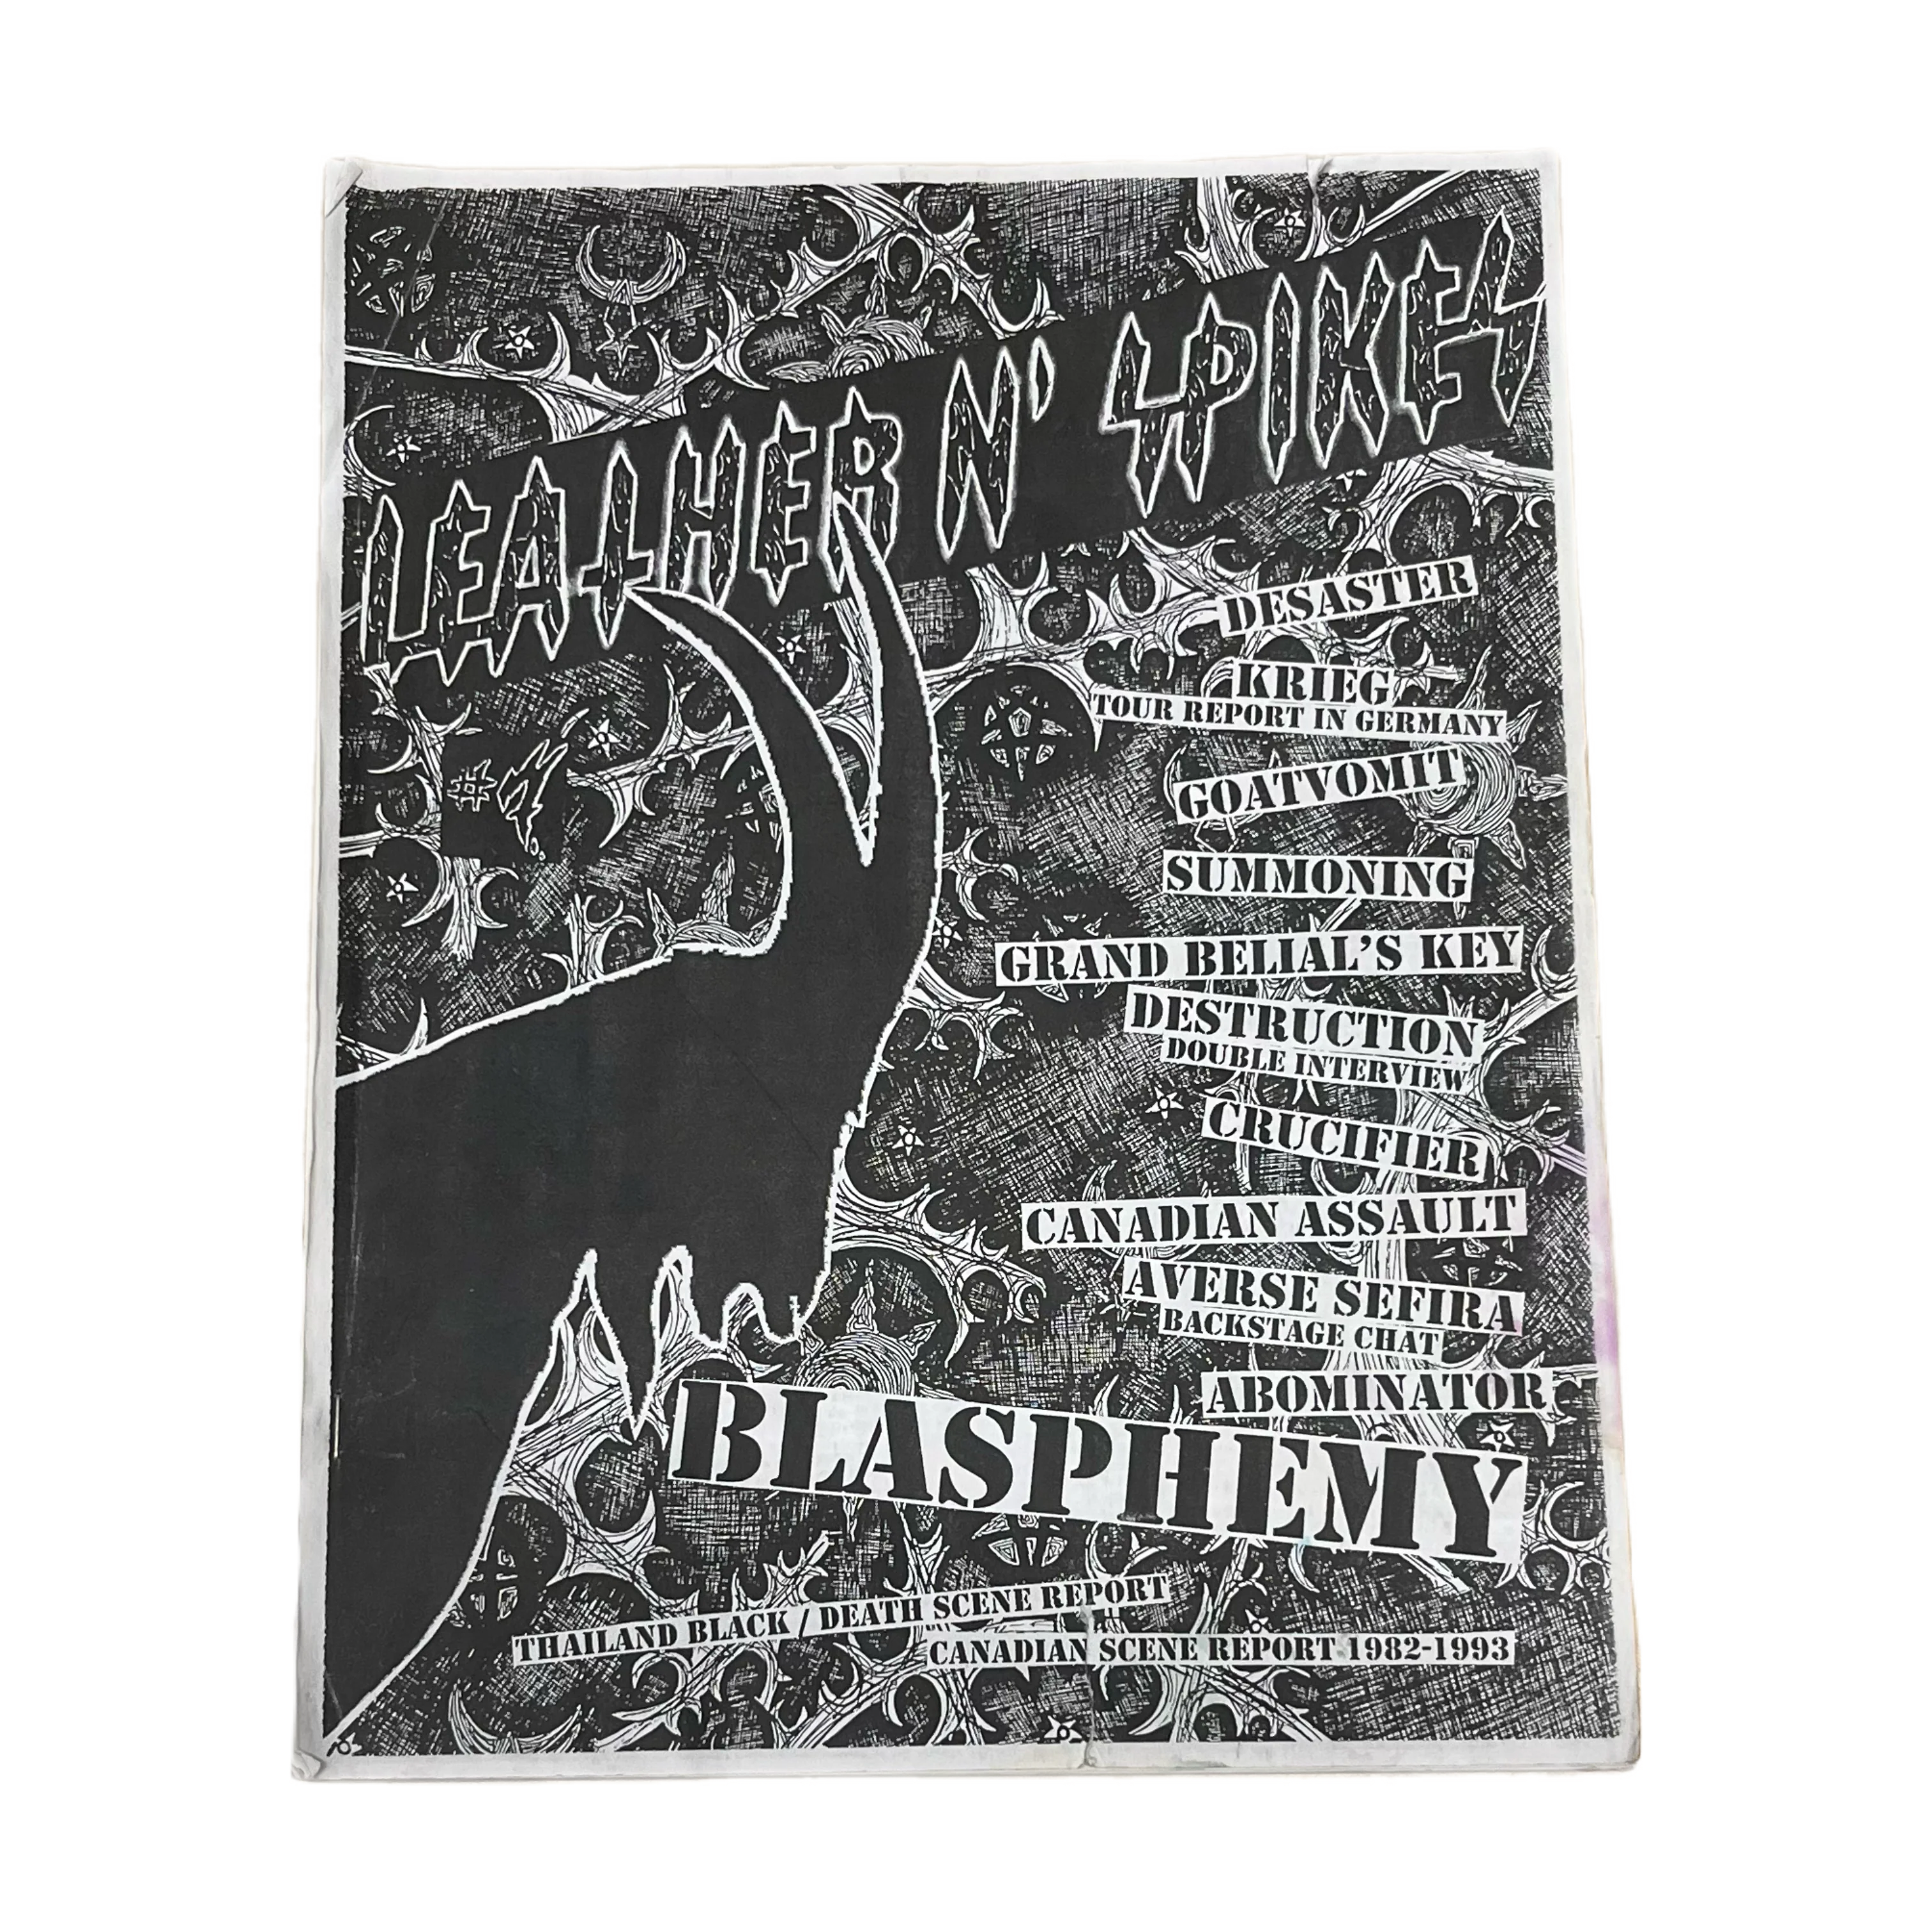 LEATHER N' SPIKES
DESASTER
KRIEG
TOUR REPORT IN GERMANY
GOATVOMIT
SUMMONING
GRAND BELIAL'S KEY
DESTRUCTION
DOUBLE INTERVIEW
CRUCIFIER
CANADIAN ASSAULT
AVERSE SEFIRA
BACKSTAGE CHAT
ABOMINATOR
BLASPHEMY
THAILAND BLACK / DEATH SCENE REPORT
CANADIAN SCENE REPORT 1982-1993